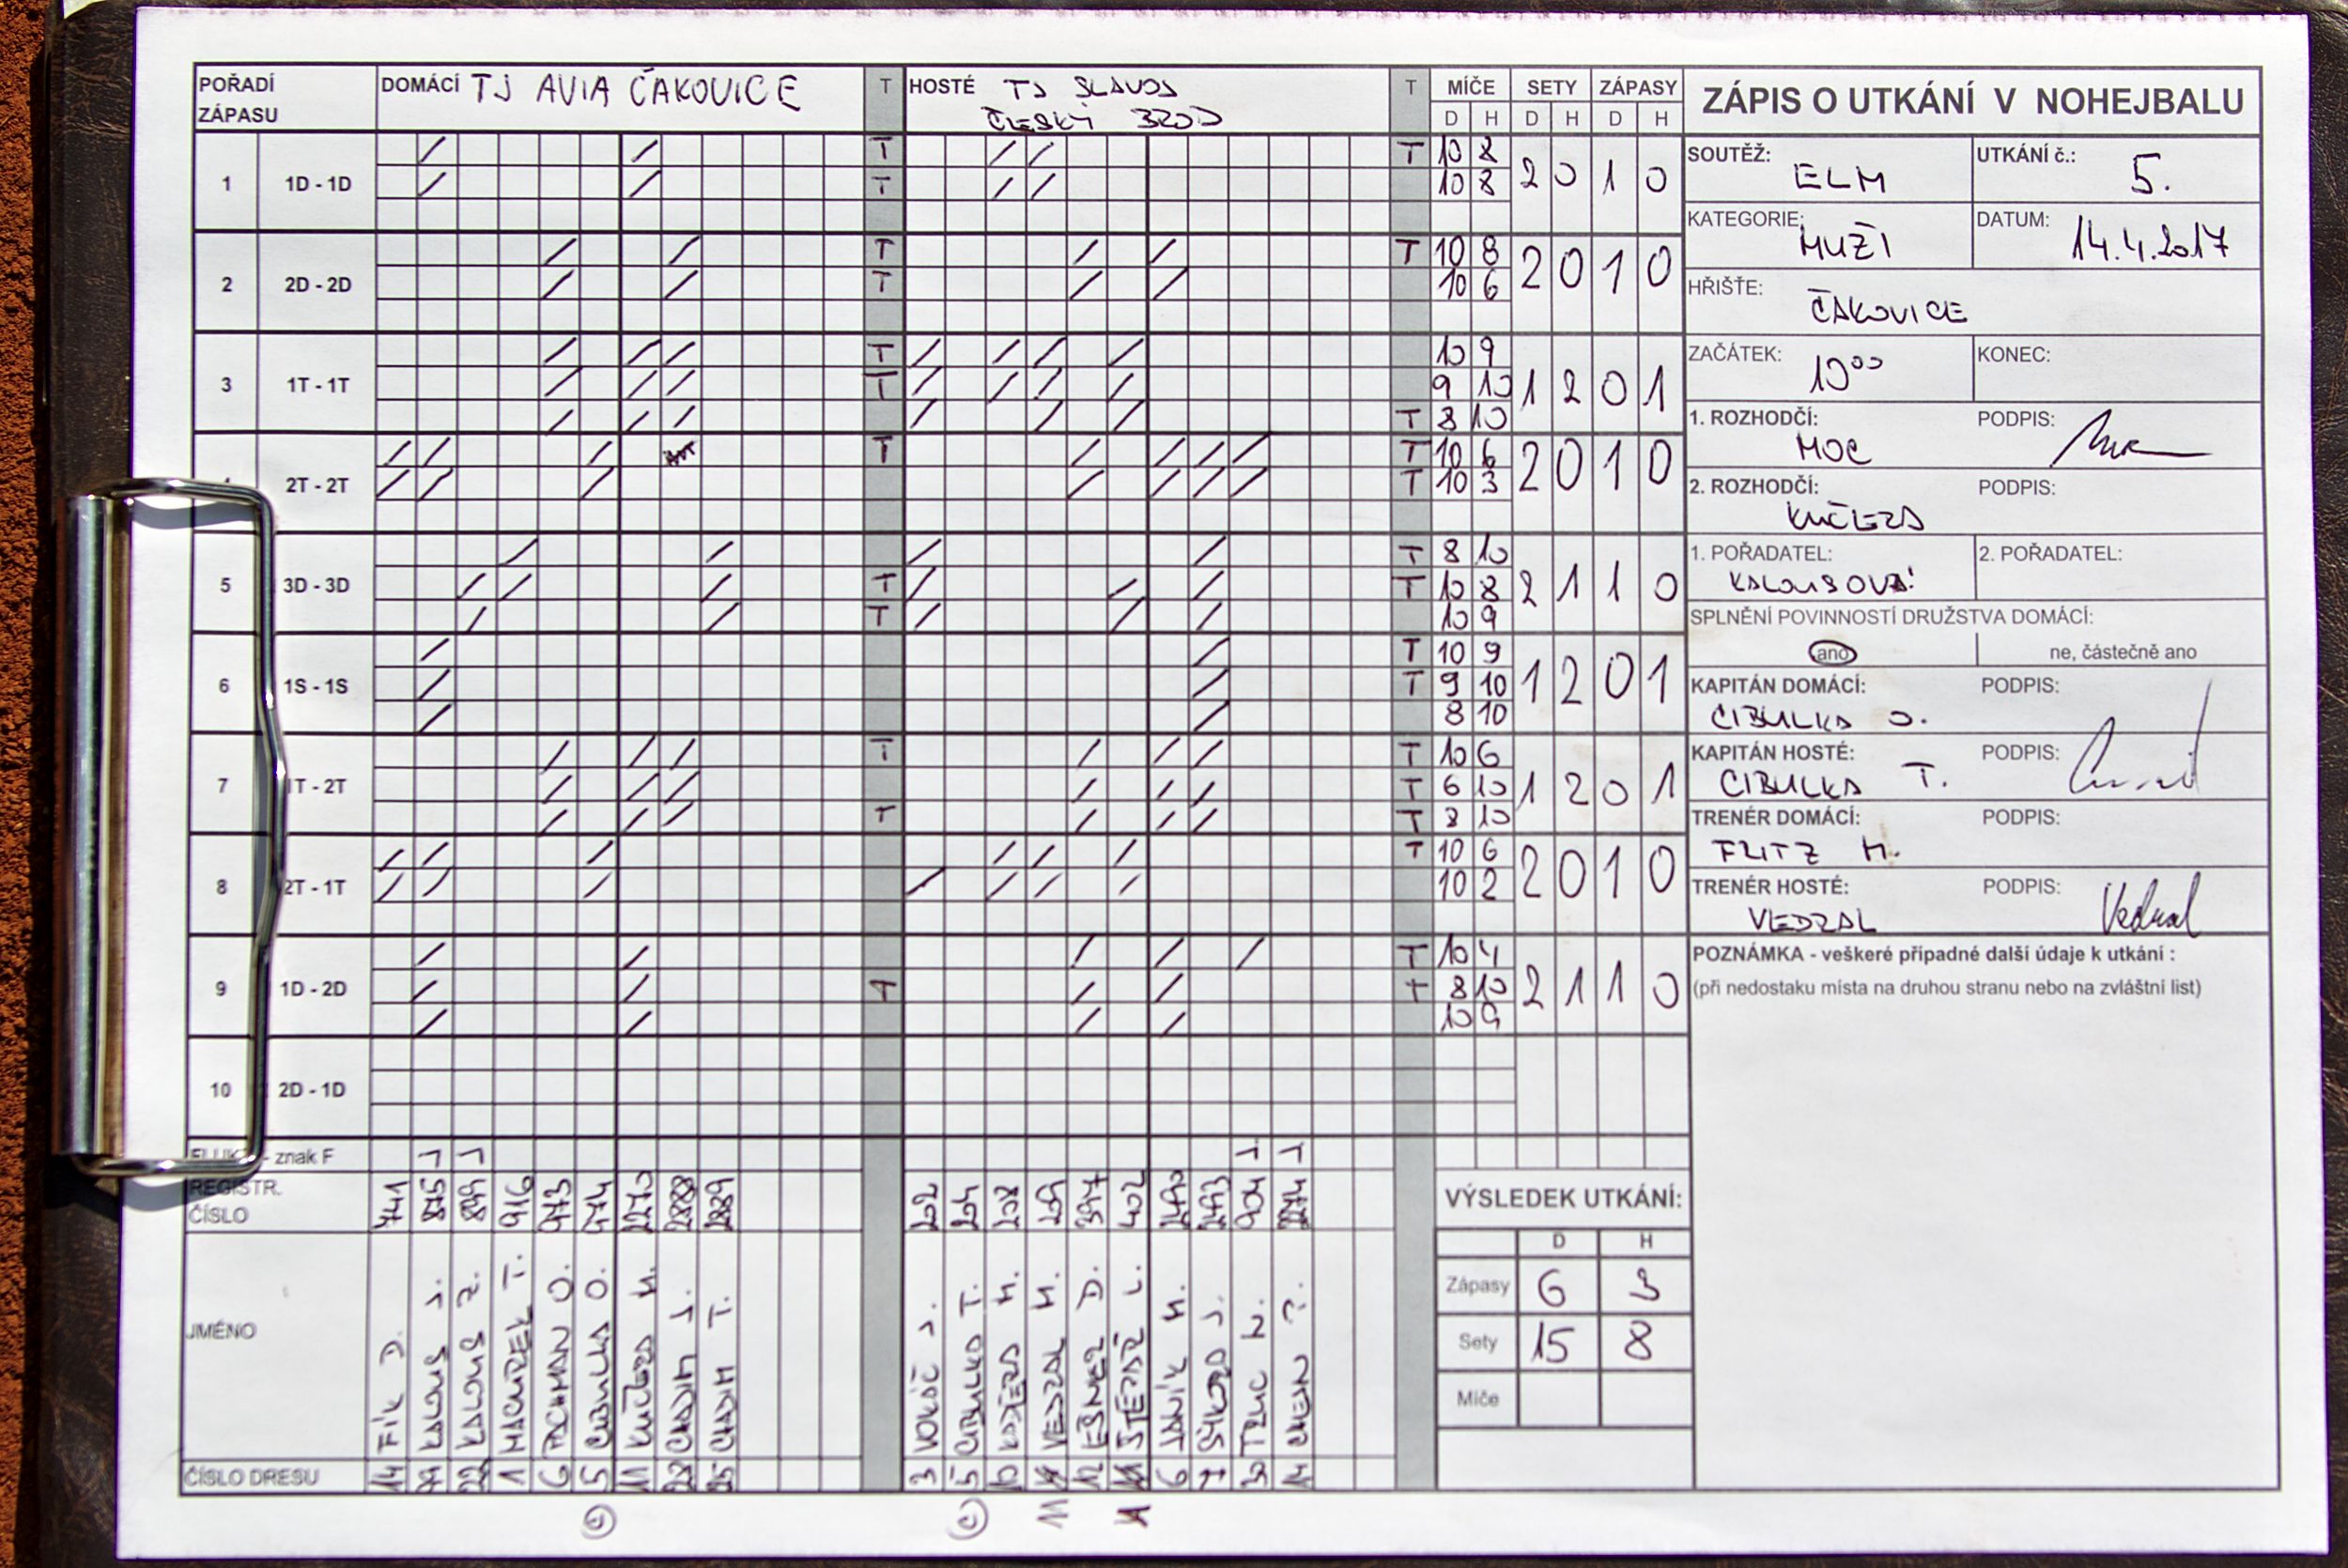 POŘADÍ ZÁPASU DOMÁCÍ TJ AVIA ČAKOVICE T HOSTÉ TJ SLAVOJ ČESKÝ BROD T MÍČE SETY ZÁPASY
D H D H D H
ZÁPIS O UTKÁNÍ V NOHEJBALU
1 1D - 1D T T 10 8 2 0 1 0
T 10 8
2 2D - 2D T T 10 8 2 0 1 0
T 10 6
3 1T - 1T T 10 9 1 2 0 1
T 9 10
T 8 10
2T - 2T T T 10 6 2 0 1 0
T 10 3
5 3D - 3D T 8 10 2 1 1 0
T T 10 8
T 10 9
6 1S - 1S T 10 9 1 2 0 1
T 9 10
8 10
7 1T - 2T T T 10 6 1 2 0 1
T 6 10
T T 8 10
8 2T - 1T T 10 6 2 0 1 0
10 2
9 1D - 2D T 10 4 2 1 1 0
T T 8 10
10 9
10 2D - 1D
- znak F J J J J
REGISTR. ČÍSLO 741 875 899 916 973 974 2270 2888 2889 202 204 208 209 397 402 2490 2493 904
JMÉNO FÍK D. KALOUS J. KALOUS Z. MACOUREK T. PACHMAN O. CIBULKA O. KUČERA M. CHADIM J. CHADIM T. VOKÁČ J. CIBULKA T. KODERA M. VEDRAL M. EBNER D. ŠTEPÁŘ L. JANÍK M. SÝKORA J. TRUC N.
ČÍSLO DRESU 14 22 1 6 5 11 28 25 3 5 10 12 6 7 30 14
C C 11
SOUTĚŽ: ELM UTKÁNÍ č.: 5.
KATEGORIE: MUŽI DATUM: 14.4.2017
HŘIŠTE: ČAKOVICE
ZAČÁTEK: 10 00 KONEC:
1. ROZHODČÍ: MOC PODPIS:
2. ROZHODČÍ: KUČERA PODPIS:
1. POŘADATEL: KALOUSOVÁ 2. POŘADATEL:
SPLNĚNÍ POVINNOSTÍ DRUŽSTVA DOMÁCÍ:
ano ne, částečně ano
KAPITÁN DOMÁCÍ: CIBULKA O. PODPIS:
KAPITÁN HOSTÉ: CIBULKA T. PODPIS:
TRENÉR DOMÁCÍ: FRITZ M. PODPIS:
TRENÉR HOSTÉ: VEDRAL PODPIS: Vedral
POZNÁMKA - veškeré případné další údaje k utkání :
(při nedostaku místa na druhou stranu nebo na zvláštní list)
VÝSLEDEK UTKÁNÍ:
D H
Zápasy 6 3
Sety 15 8
Míče